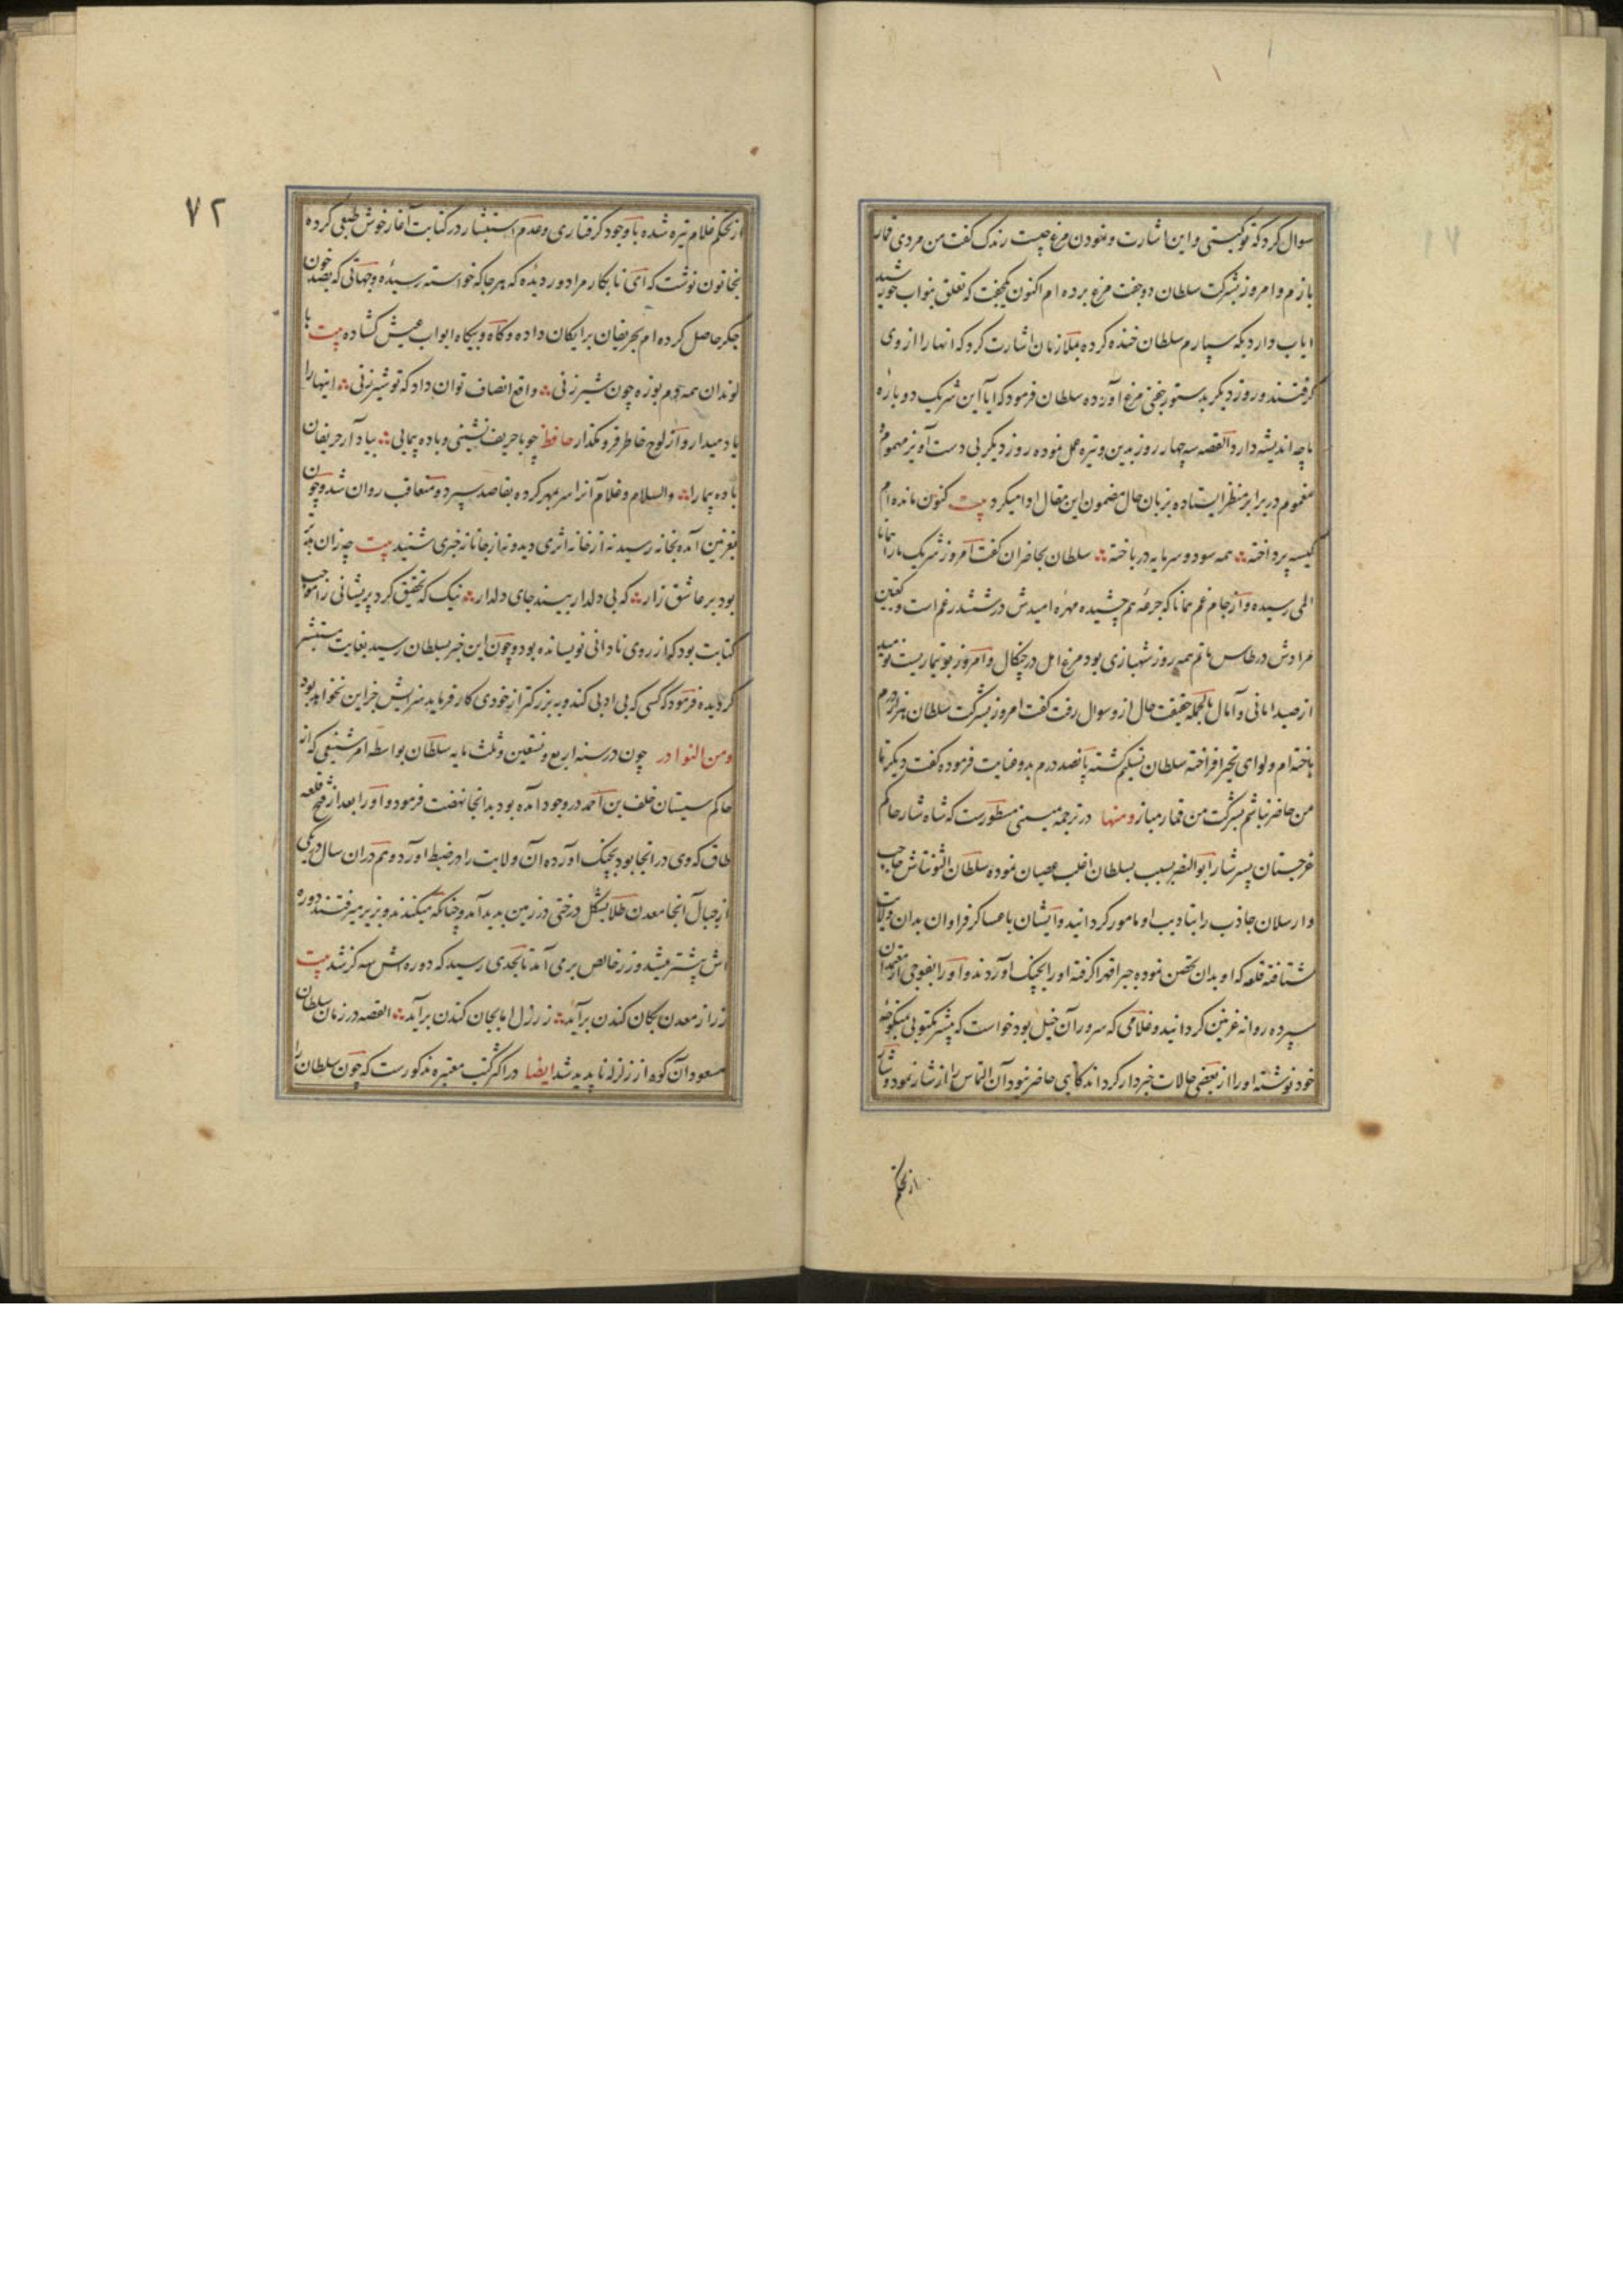 سوال کرد که تو کیستی و این اشارت و نمودن مرغ چیست زندک گفت من مردی قمار
بازم و امروز بشرکت سلطان دو جفت مرغ برده ام اکنون یکجفت که تعلق بنواب خورشید
ایاب دارد بکه سپارم سلطان خنده کرده بملازمان اشارت کرد که انها را از وی
گرفتند و روز دیگر بدستور جفتی مرغ آورده سلطان فرمود که ایا این شریک دوباره
با چه اندیشه دارد القصه سه چهار روز بدین وتیره عمل نموده روز دیگر بی دست آویز مهموم و
مغموم در برابر منظر ایستاده بزبان حال مضمون این مقال ادا میکرد بیت کنون مانده ام
کیسه پرداخته همه سود و سرمایه در باخته سلطان بحاضران گفت امروز شریک ما را همانا
المی رسیده و از جام غم همانا که جرعه هم چشیده مهره امیدش در ششدر غم است و کعبتین
مرادش در طاس ماتم همه روز شهبازی بود مرغ امل در چنگال و امروز بوتیماریست نومید
از صید امانی و آمال بالجمله حقیقت حال از و سوال رفت گفت امروز بشرکت سلطان هزار درم
باخته ام و لوای تحیر افراخته سلطان تبسم گشته پانصد درم بدو عنایت فرموده گفت دیگر تا
من حاضر نباشم بشرکت من قمار مباز ومنها در ترجمه یمینی مسطورست که شاه شار حاکم
غرجستان پسر شار ابوالنصر بسبب بسلطان اغلب عصیان نموده سلطان التونتاش حاجب
و ارسلان جاذب را بتادیب او مامور گردانید و ایشان با عساکر فراوان بدان ولایت
شتافته قلعه که او بدان تحصن نموده جبرا قهرا گرفته او را بچنگ آوردند و او را بفوجی از معتمدان
سپرده روانه غزنین گردانید و غلامی که سرور آن خیل بود خواست که پیشتر مکتوبی بمنکوحه
خود نوشته او را از بعضی حالات خبردار گرداند کاتبی حاضر نبود آن التماس را از شار نمود و شار
از تحکم
٧٢
از تحکم غلام تیره شده با وجود گرفتاری و عدم استبشار در کتابت آغاز خوش طبعی کرده
بخاتون نوشت که ای نابکار مرا دور دیده که هر جا که خواسته رسیده و جهاتی که بصد خون
جگر حاصل کرده ام بحریفان برایگان داده و گاه و بیگاه ابواب عیش گشاده بیت با
لوندان همه دم بوزه چون شیر زنی واقع انصاف توان داد که تو شیر زنی اینها را
یاد میدار و از لوح خاطر فرو مگذار حافظ چو با حریف نشینی و باده پیمایی بیاد آر حریفان
باده پیما را والسلام و غلام آنرا سر مهر کرده بقاصد سپرد و متعاقب روان شد و چون
بغزنین آمده بخانه رسید نه از خانه اثری دید و نه از جانانه خبری شنید بیت چه زان بتر
بود بر عاشق زار که بی دلدار بیند جای دلدار نیک که تحقیق کرد پریشانی زن بموجب
کتابت بود که از روی نادانی نویسانده بود و چون این خبر بسلطان رسید بغایت مستبشر
گردیده فرمود که کسی که بی ادبی کند و به بزرگتر از خودی کار فرماید سزایش جز این نخواهد بود
ومن النوادر چون در سنه اربع و تسعین و ثلث مایه سلطان بواسطه امر شنیعی که از
حاکم سیستان خلف بن احمد در وجود آمده بود بدانجا نهضت فرمود و او را بعد از فتح قلعه
طاق که وی در انجا بود بچنگ آورده آن ولایت را در ضبط آورد و هم در ان سال در یکی
از جبال آنجا معدن طلا بشکل درختی در زمین پدید آمد و چنانکه میکندند و بزیر میرفتند دوره
اش بیشتر میشد و زر خالص بر می آمد تا بحدی رسید که دوره اش سه گز شد بیت
زر از معدن بکان کندن برآید ز رزل اما بجان کندن برآید القصه در زمان سلطان
مسعود آن کوه از زلزله ناپدید شد ایضا در اکثر کتب معتبره مذکورست که چون سلطان را